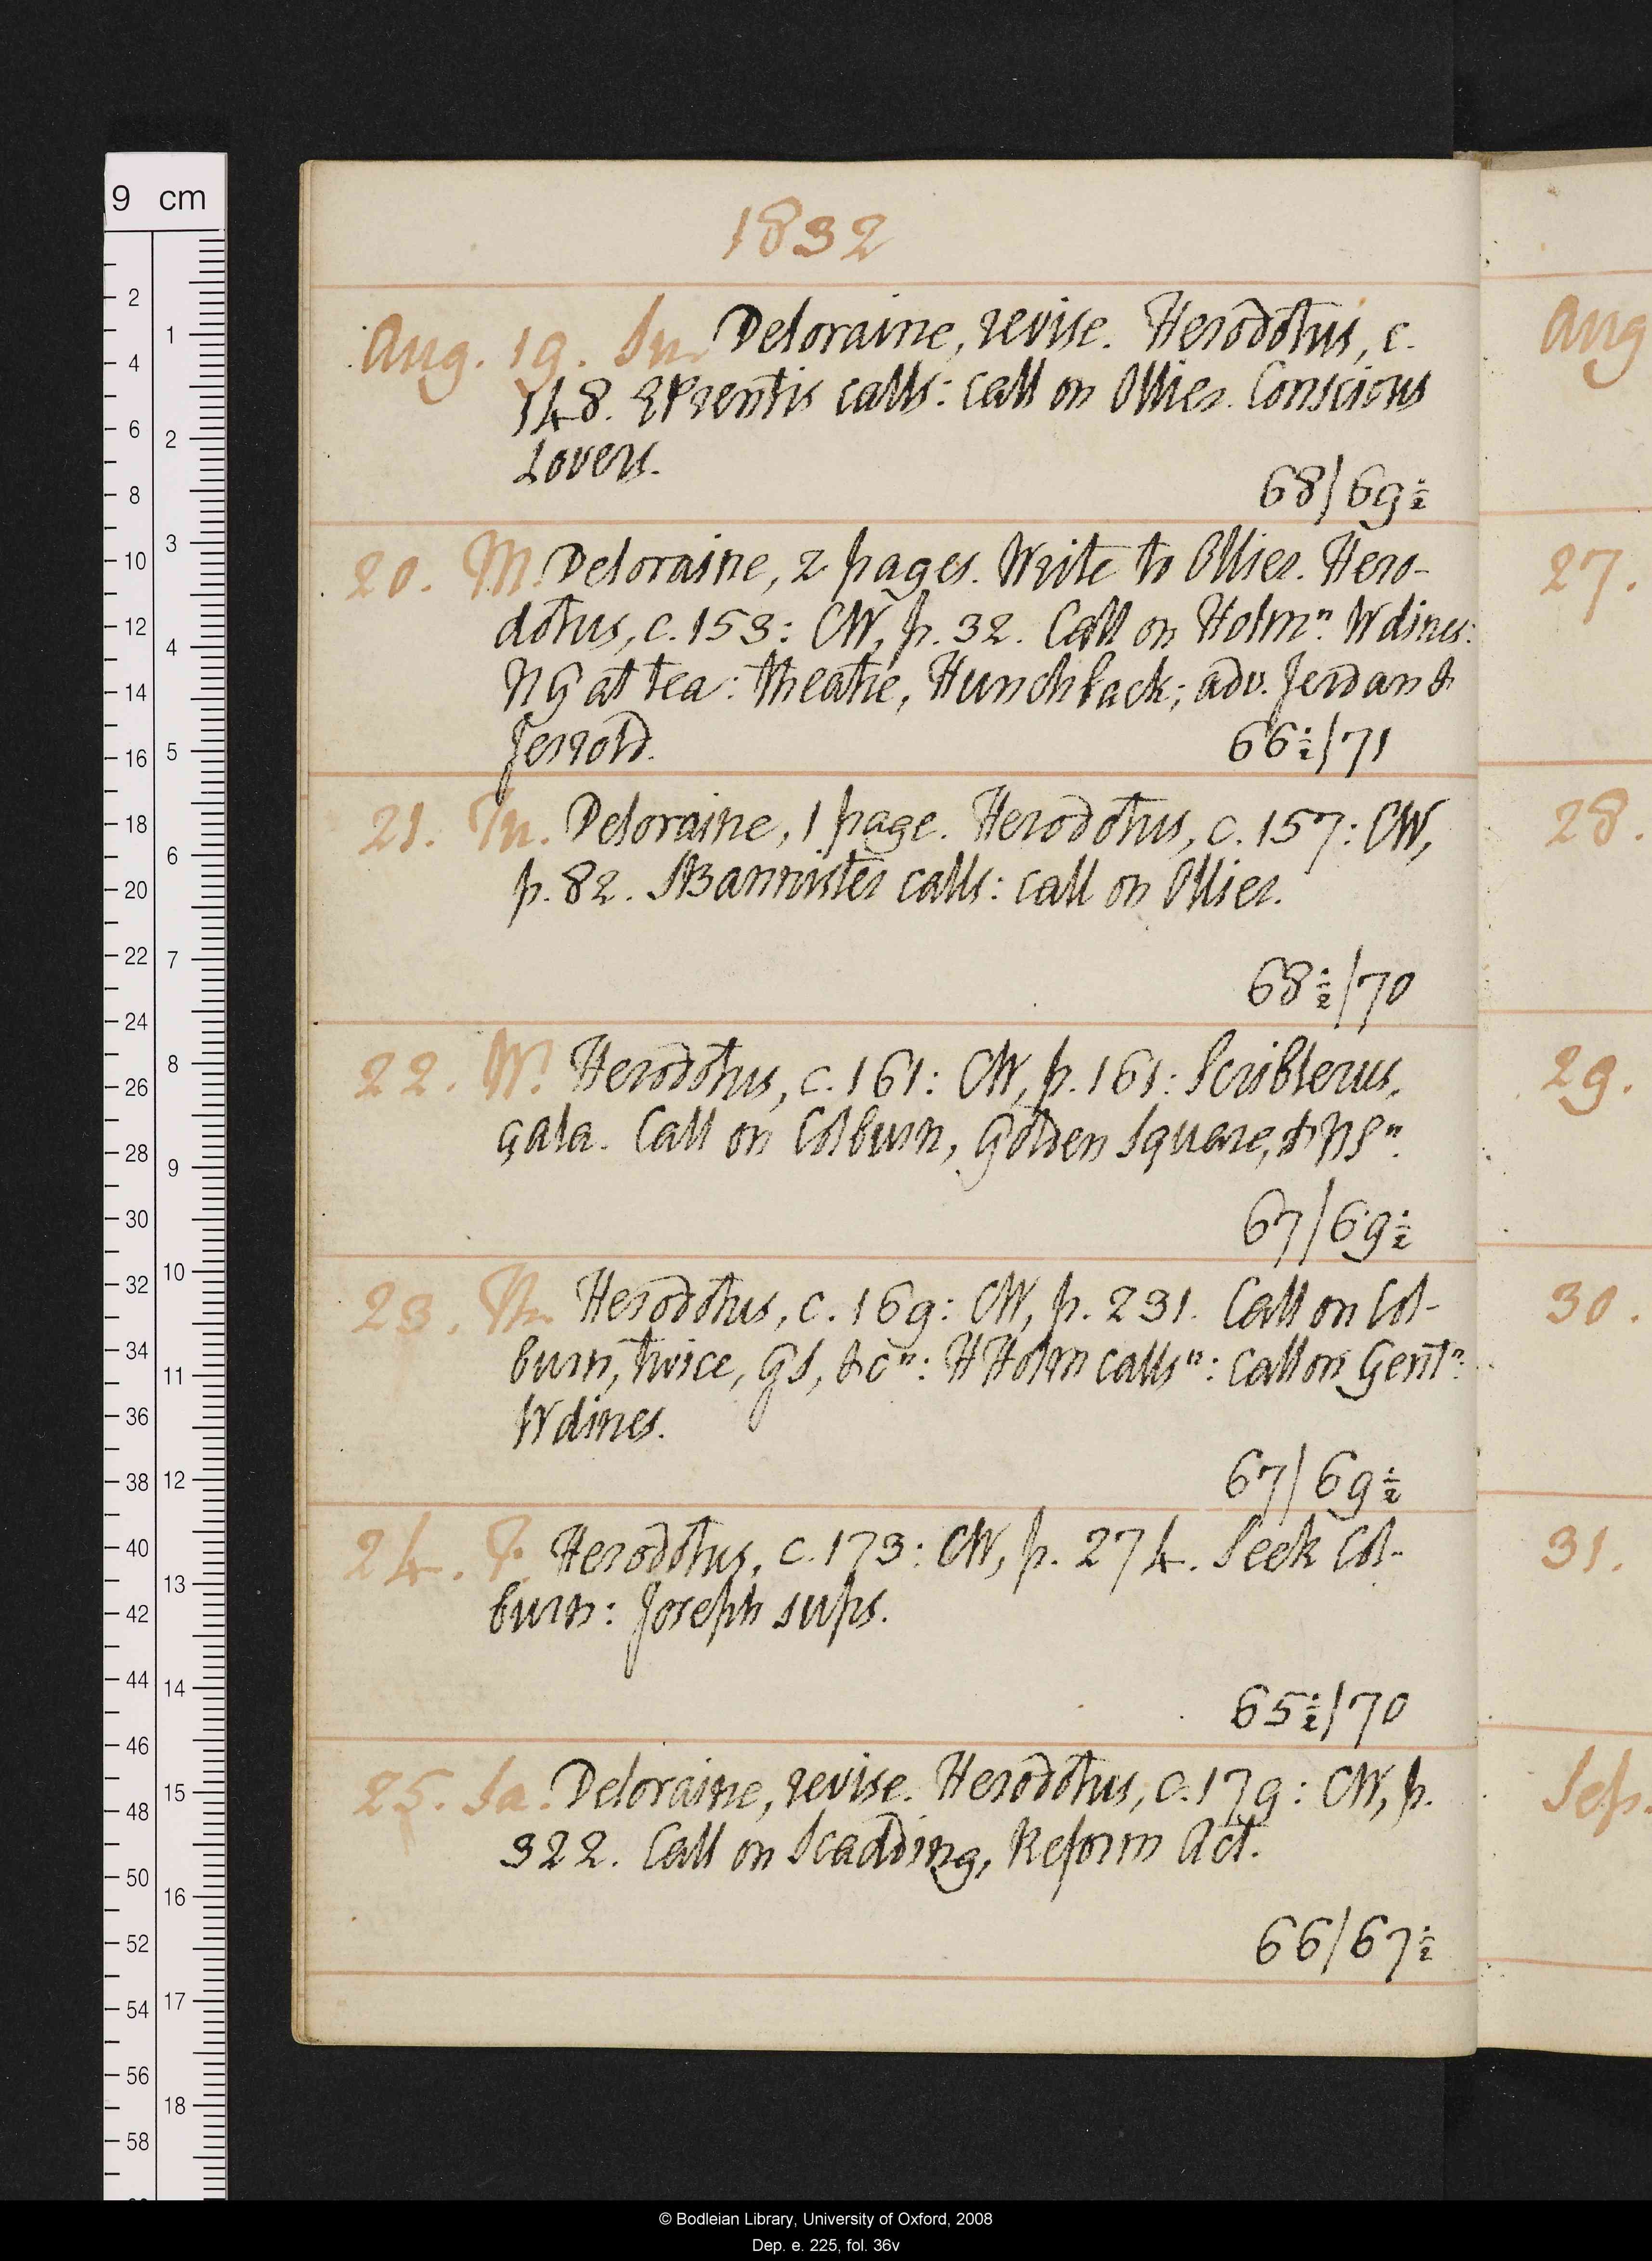 1832
Aug. 19. Su. Deloraine, revise. Herodotus, c.
148. EPrentis calls: call on Ollier. Conscious
Lovers.
68/69½
20. M. Deloraine, 2 pages. Write to Ollier. Hero-
dotus, c. 153: CW, p. 32. Call on Holmⁿ. W dines:
NG at tea: theatre, Hunchback; adv. Jerdan &
Jerrold.
66½/71
21. Tu. Deloraine, 1 page. Herodotus, c. 157: CW,
p. 82. SBannister calls: call on Ollier.
68½/70
22. W. Herodotus, c. 161: CW, p. 161: Scriblerus,
gala. Call on Colburn, Golden Square, & NSⁿ.
67/69½
23. Th. Herodotus, c. 169: CW, p. 231. Call on Col-
burn, twice, GS, & Cⁿ: HHolm callsⁿ: call on Gentⁿ:
W dines.
67/69½
24. F. Herodotus, c. 173: CW, p. 274. Seek Col-
burn: Joseph sups.
65½/70
25. Sa. Deloraine, revise. Herodotus, c. 179: CW, p.
322. Call on Scadding, Reform Act.
66/67½
Aug
27.
28.
29.
30.
31.
Sep.
9 cm
2
4
6
8
10
12
14
16
18
20
22
24
26
28
30
32
34
36
38
40
42
44
46
48
50
52
54
56
58
1
2
3
4
5
6
7
8
9
10
11
12
13
14
15
16
17
18
© Bodleian Library, University of Oxford, 2008
Dep. e. 225, fol. 36v